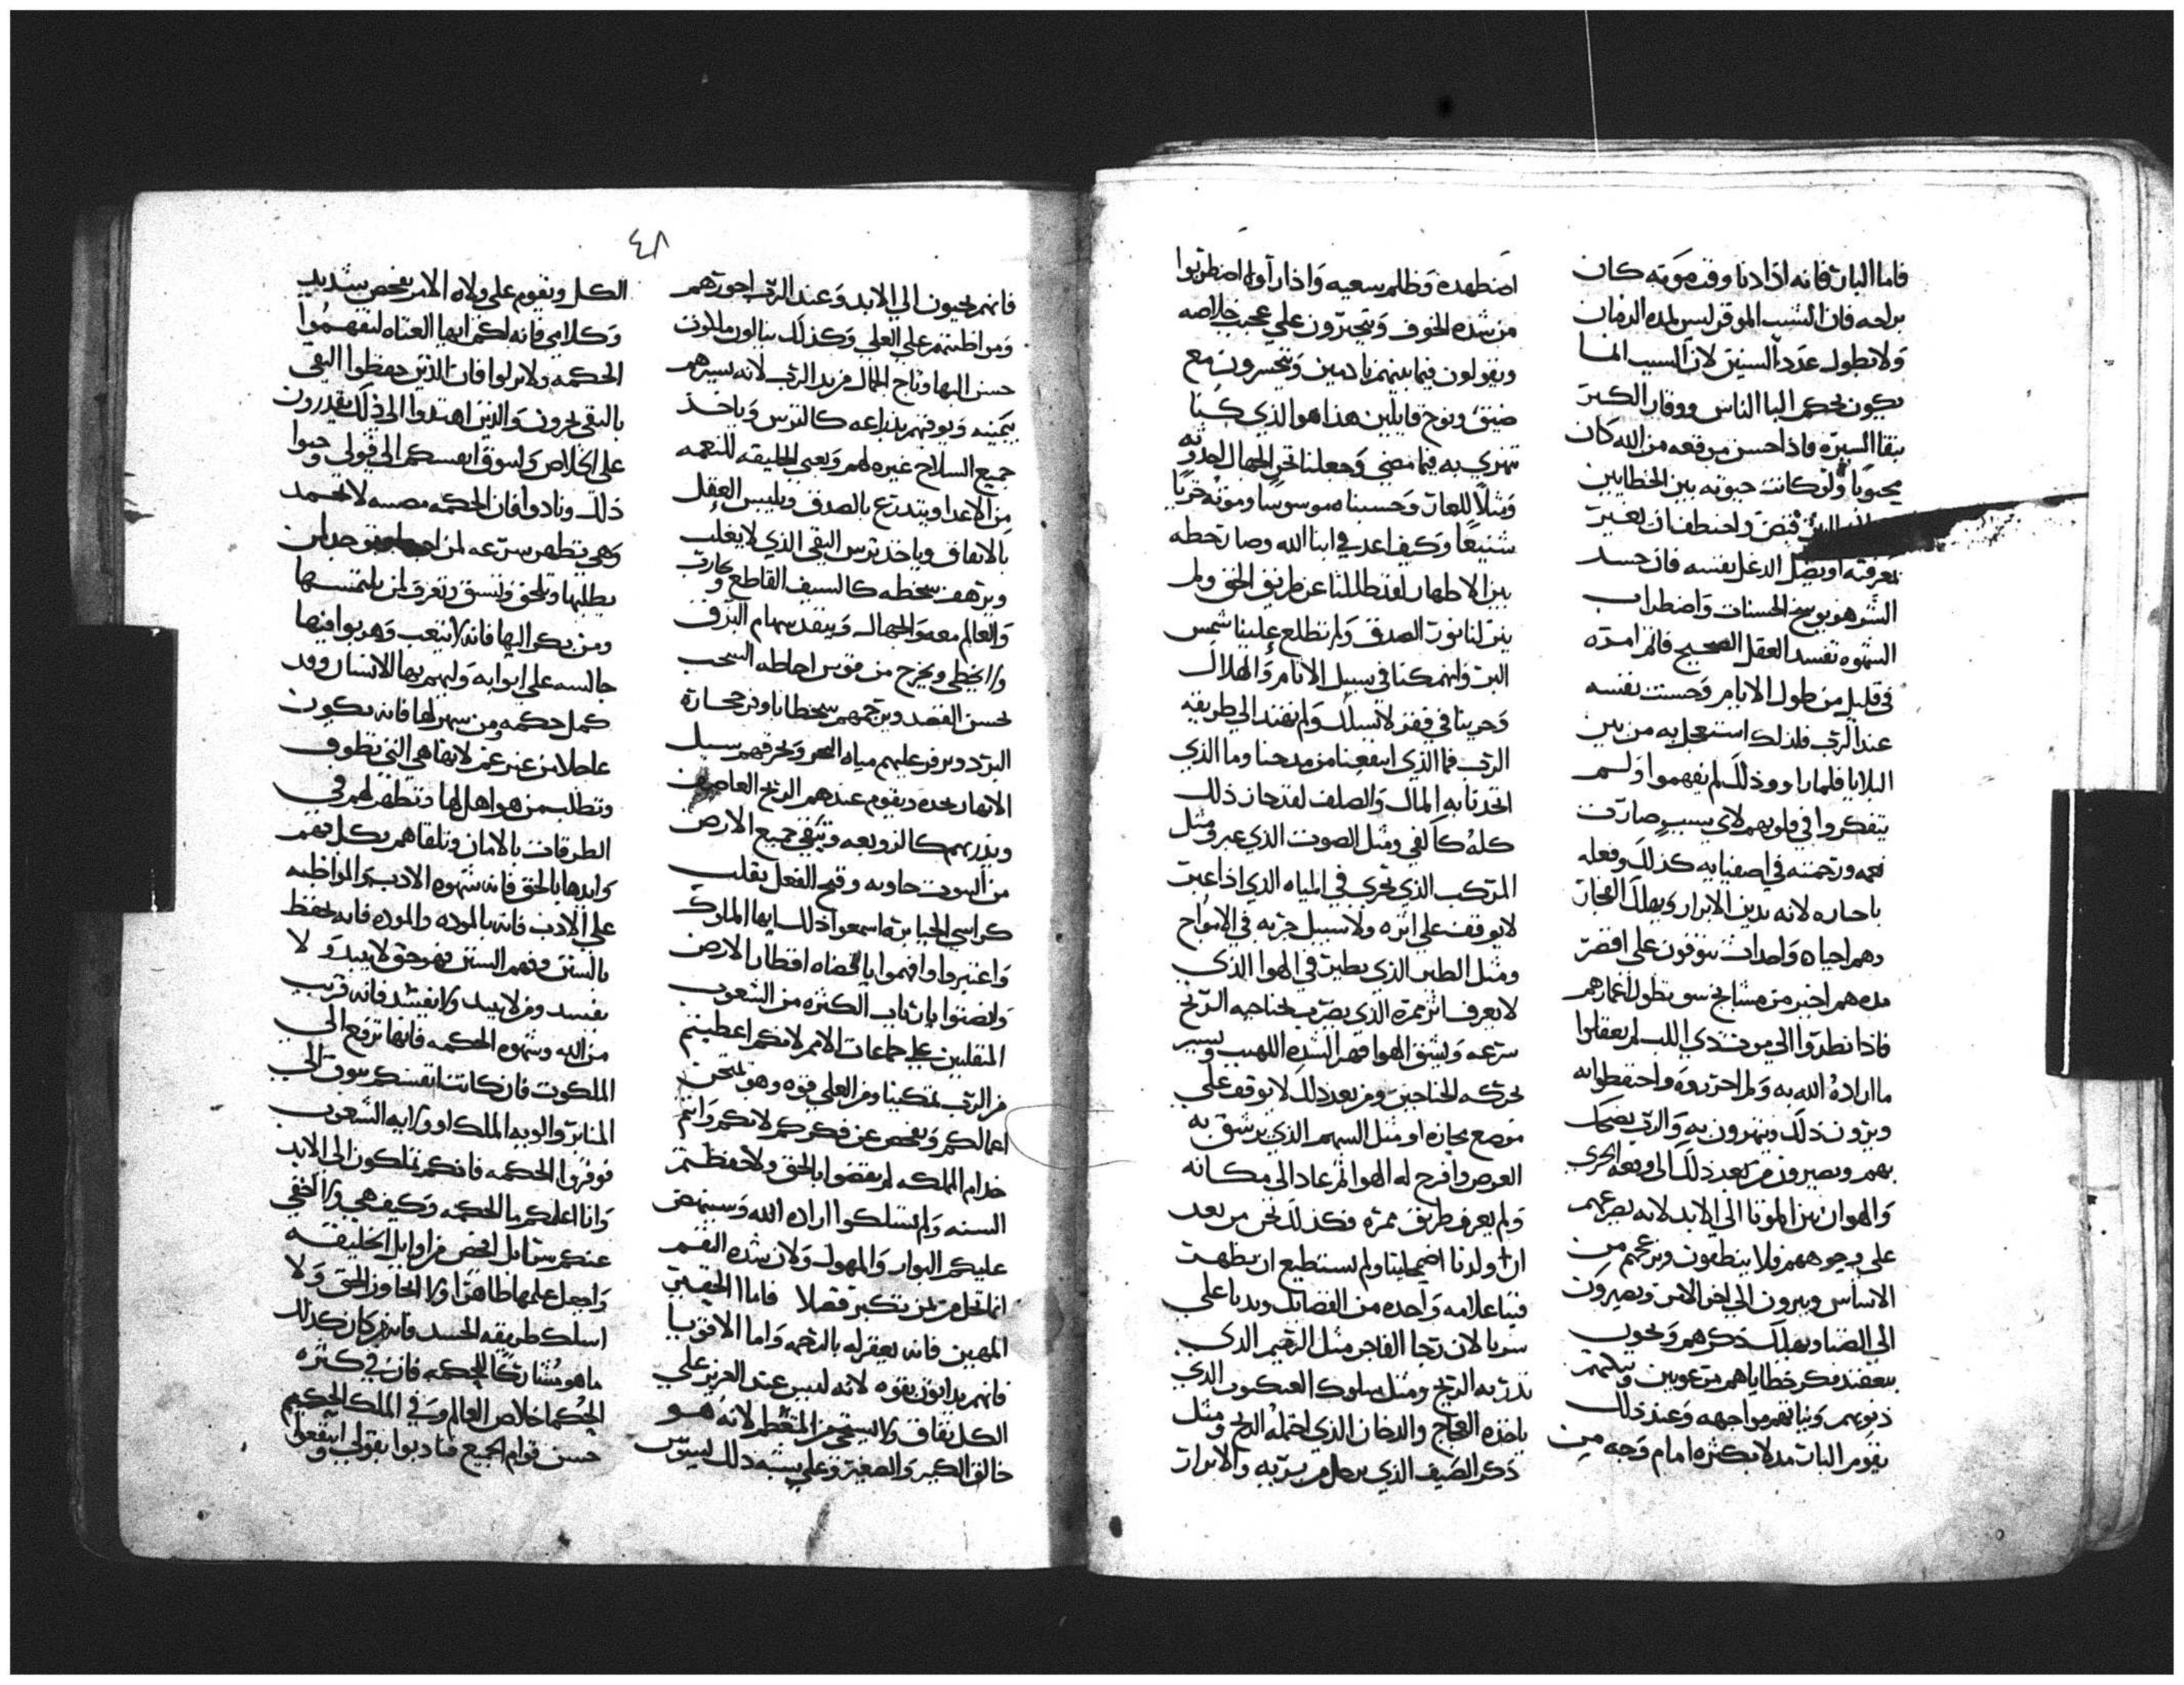 فاما البار فانه اذا دنا وقت موته كان
براحه فان الشيب الموقر ليس لمده الزمان
ولا بطول عدد السنين لان السبب انما
يكون بحكم البا الناس ووقار الكبر
بنقا السيره فاذا حسن من رفعه من الله كان
محبوبا ولو كانت حيوته بين الخطايين
قبض واختطف ان تعير
معرفته او يضل الدغل نفسه فان حسد
الشر هو يوسخ الحسنات واضطراب
الشهوه تفسد العقل الصحيح فاثمر امره
في قليل من طول الايام وحسنت نفسه
عند الرب فلذلك استعجل به من بين
البلايا فلما راوو ذلك لم يفهموا ولم
يتفكروا في قلوبهم لاي سبب صارت
نعمه ورحمته في اصفيايه كذلك وفعله
باحباره لانه يدين الابرار ويهلك الفجار
وهم احياه واحداث يتوفون على اقصر
مده هم اخير من مشايخ سو تطول اعمارهم
فاذا نظروا الي من ذي اللب لم يعقلوا
ما اراده الله به ولما احرزوه واحتفظوا به
ويرون ذلك ويزرون به والرب يضحك
بهم ويصيرون من بعد ذلك الى وقعه الخزي
والهوان بين الموتا الي الابد لانه يصرعهم
على وجوههم فلا ينطقون ويزعجهم من
الاساس ويبرون الي اخر الامر ويصيرون
الى الضنا ويهلك ذكرهم ويحون
بتعقد فكر خطاياهم مرعوبين وتبكتهم
ذنوبهم وثباتهم مواجهه وعند ذلك
يقوم البار بداله بكثره امام وجه من
اضطهده وظلم سعيه واذا رآوه اضطربوا
من شده الخوف ويتحيرون علي عجيب خلاصه
ويقولون فيما بينهم نادمين ويتحسرون مع
ضيق ونوح قايلين هذا هو الذي كنا
نهزي به فيما مضى وجعلنا نحن الجهال احدوثه
ومثلا للعار وحسبناه موسوسا وموته خزيا
شنيعا وكيف اعد في ابنا الله وصار حظه
بين الاطهار لقد ظللنا عن طريق الحق ولم
ينر لنا نور الصدق ولم تطلع علينا شمس
البر وانهمكنا في سبيل الاثام والهلاك
وجرينا في قفز لا تسلك ولم نهتد الي طريقه
الرب فما الذي انتفعنا من مدحنا وما الذي
اتحدتنا به المال والصلف لقد جاز ذلك
كله كالفي ومثل الصوت الذي عبر ومثل
المركب الذي تجري في المياه الذي اذا عبر
لا يوقف علي اثره ولا سبيل جريه في الامواج
ومثل الطير الذي يطير في الهوا الذي
لا يعرف اثر ممره الذي يضرب بجناحيه الريح
سرعه ويشق الهوا قهر الشده اللهيب ويسير
بحركه الجناحين ومن بعد ذلك لا يوقف علي
موضع مجازه او مثل السهم الذي يرشق به
الغرض وافرج له الهوا ثم عاد الى مكانه
ولم يعرف طريق ممره فكذلك نحن من بعد
ان ولدنا اضمحلينا ولم نستطيع ان نظهر
فينا علامه واحده من الفضايل وبدنا علي
سرنا لان رجا الفاجر مثل الرقيم الذي
تذريه الريح ومثل سلوك العنكبوت الذي
ياخذه العجاج والدخان الذي احمله الريح ومثل
ذكر الضيف الذي يرحل من يربه والابرار
٤٨
فانهم يحيون الي الابد وعند الرب اجورهم
ومواظبتهم علي العلي وكذلك ينالون ملكوت
حسن البها وتاج الجمال من يد الرب لانه يسترهم
بيمينه ويوقيهم بذراعه كالترس وياخذ
جميع السلاح غيره لهم ويعبي الخليقه للنقمه
من الاعدا ويتدرع بالصدق ويلبس العقل
بالاتفاق وياخذ ترس التقي الذي لا يغلب
ويرهف سخطه كالسيف القاطع ويحارب
والعالم معه الجهال وينفذ سهام البرق
ولا يخطي ويخرج من قوس احاطه السحب
بحسن القصد ويرجمهم سخط اناوه من حجاره
البرد ويزفر عليهم مياه البحر ويخرقهم سيل
الانهار بحده ويقوم عندهم الريح العاصف
ويذريهم كالزوبعه وتبقي جميع الارض
من البيوت خاويه وقبح الفعل يقلب
كراسي الجبابره اسمعوا ذلك ايها الملوك
واعتبروا وافهموا يا قضاه اقطار الارض
وانصتوا يا ارباب الكثره من الشعوب
المتقلبين علي جماعات الامم لانكم اعطيتم
من الرب تمكينا ومن العلي قوه وهو يمتحن
اعمالكم ويفحص عن فكركم لانكم وانتم
خدام المملكه لم تقضوا بالحق ولا حفظتم
السنه ولم تسلكوا اراده الله وسينهض
عليكم البوار والمهول ولان شده النقم
انما تحل من بمن تكبر فضلا فاما الحقير
المهين فانه يغفر له بالرحمه واما الاقويا
فانهم يدانون بقوه لانه ليس عند العزيز علي
الكل نفاق ولا يستحي من المتعظم لانه هو
خالق الكبير والصغير وعلي يشبه ذلك يسوس
الكل ويقوم علي ولاه الامر بفحص شديد
وكلامي فانه لكم ايها العتاه لتفهموا
الحكمه ولا تزلوا فان الذين حفظوا التقي
بالتقي يحرون والذين اهتدوا الى ذلك يقدرون
علي الخلاص ولتسوق انفسكم الي قولي وحبوا
ذلك وتادبوا فان الحكمه مضيه لا تخمد
وهي تظهر سرعه لمن توجد لمن
يطلبها وتلحق وتسبق وتعرف لمن يلتمسها
ومن بكر اليها فانه لا يتعب وهو يوافيها
جالسه علي ابوابه ولتهم بها الانسان وقد
كمل حكمه ومن سهر لها فانه يكون
عاجلا من غير غم لانها هي التي تطوف
وتطلب من هو اهل لها وتظهر لهم في
الطرقات بالامان وتلقاهم بكل فهم
وابدها بالحق فانه شهوه الادب والمواظبه
علي الادب فانه بالموده والموده فانه تحفظ
بالسنن وفهم السنن فهو حق لا يبيد ولا
يفسد ومن لا يبيد ولا يفسد فانه قريب
من الله وشهوه الحكمه فانها ترفع الي
الملكوت فان كانت انفسكم تتوق الي
المنابر والويه الملك او ولايه الشعوب
فوقروا الحكمه فانكم تملكون الى الابد
وانا اعلمكم ما الحكمه وكيف هي ولا اخفي
عنكم ستا بل افحص من اوايل الخليقه
واجعل علمها ظاهرا ولا اتجاوز الحق ولا
اسلك طريقه الحسد فانه من كان كذلك
ما هو مشاركا للحكمه فان في كثره
الحكما خلاص العالم وفي الملك الحكيم
حسن قوام الجميع فتادبوا بقولي وانتفعوا